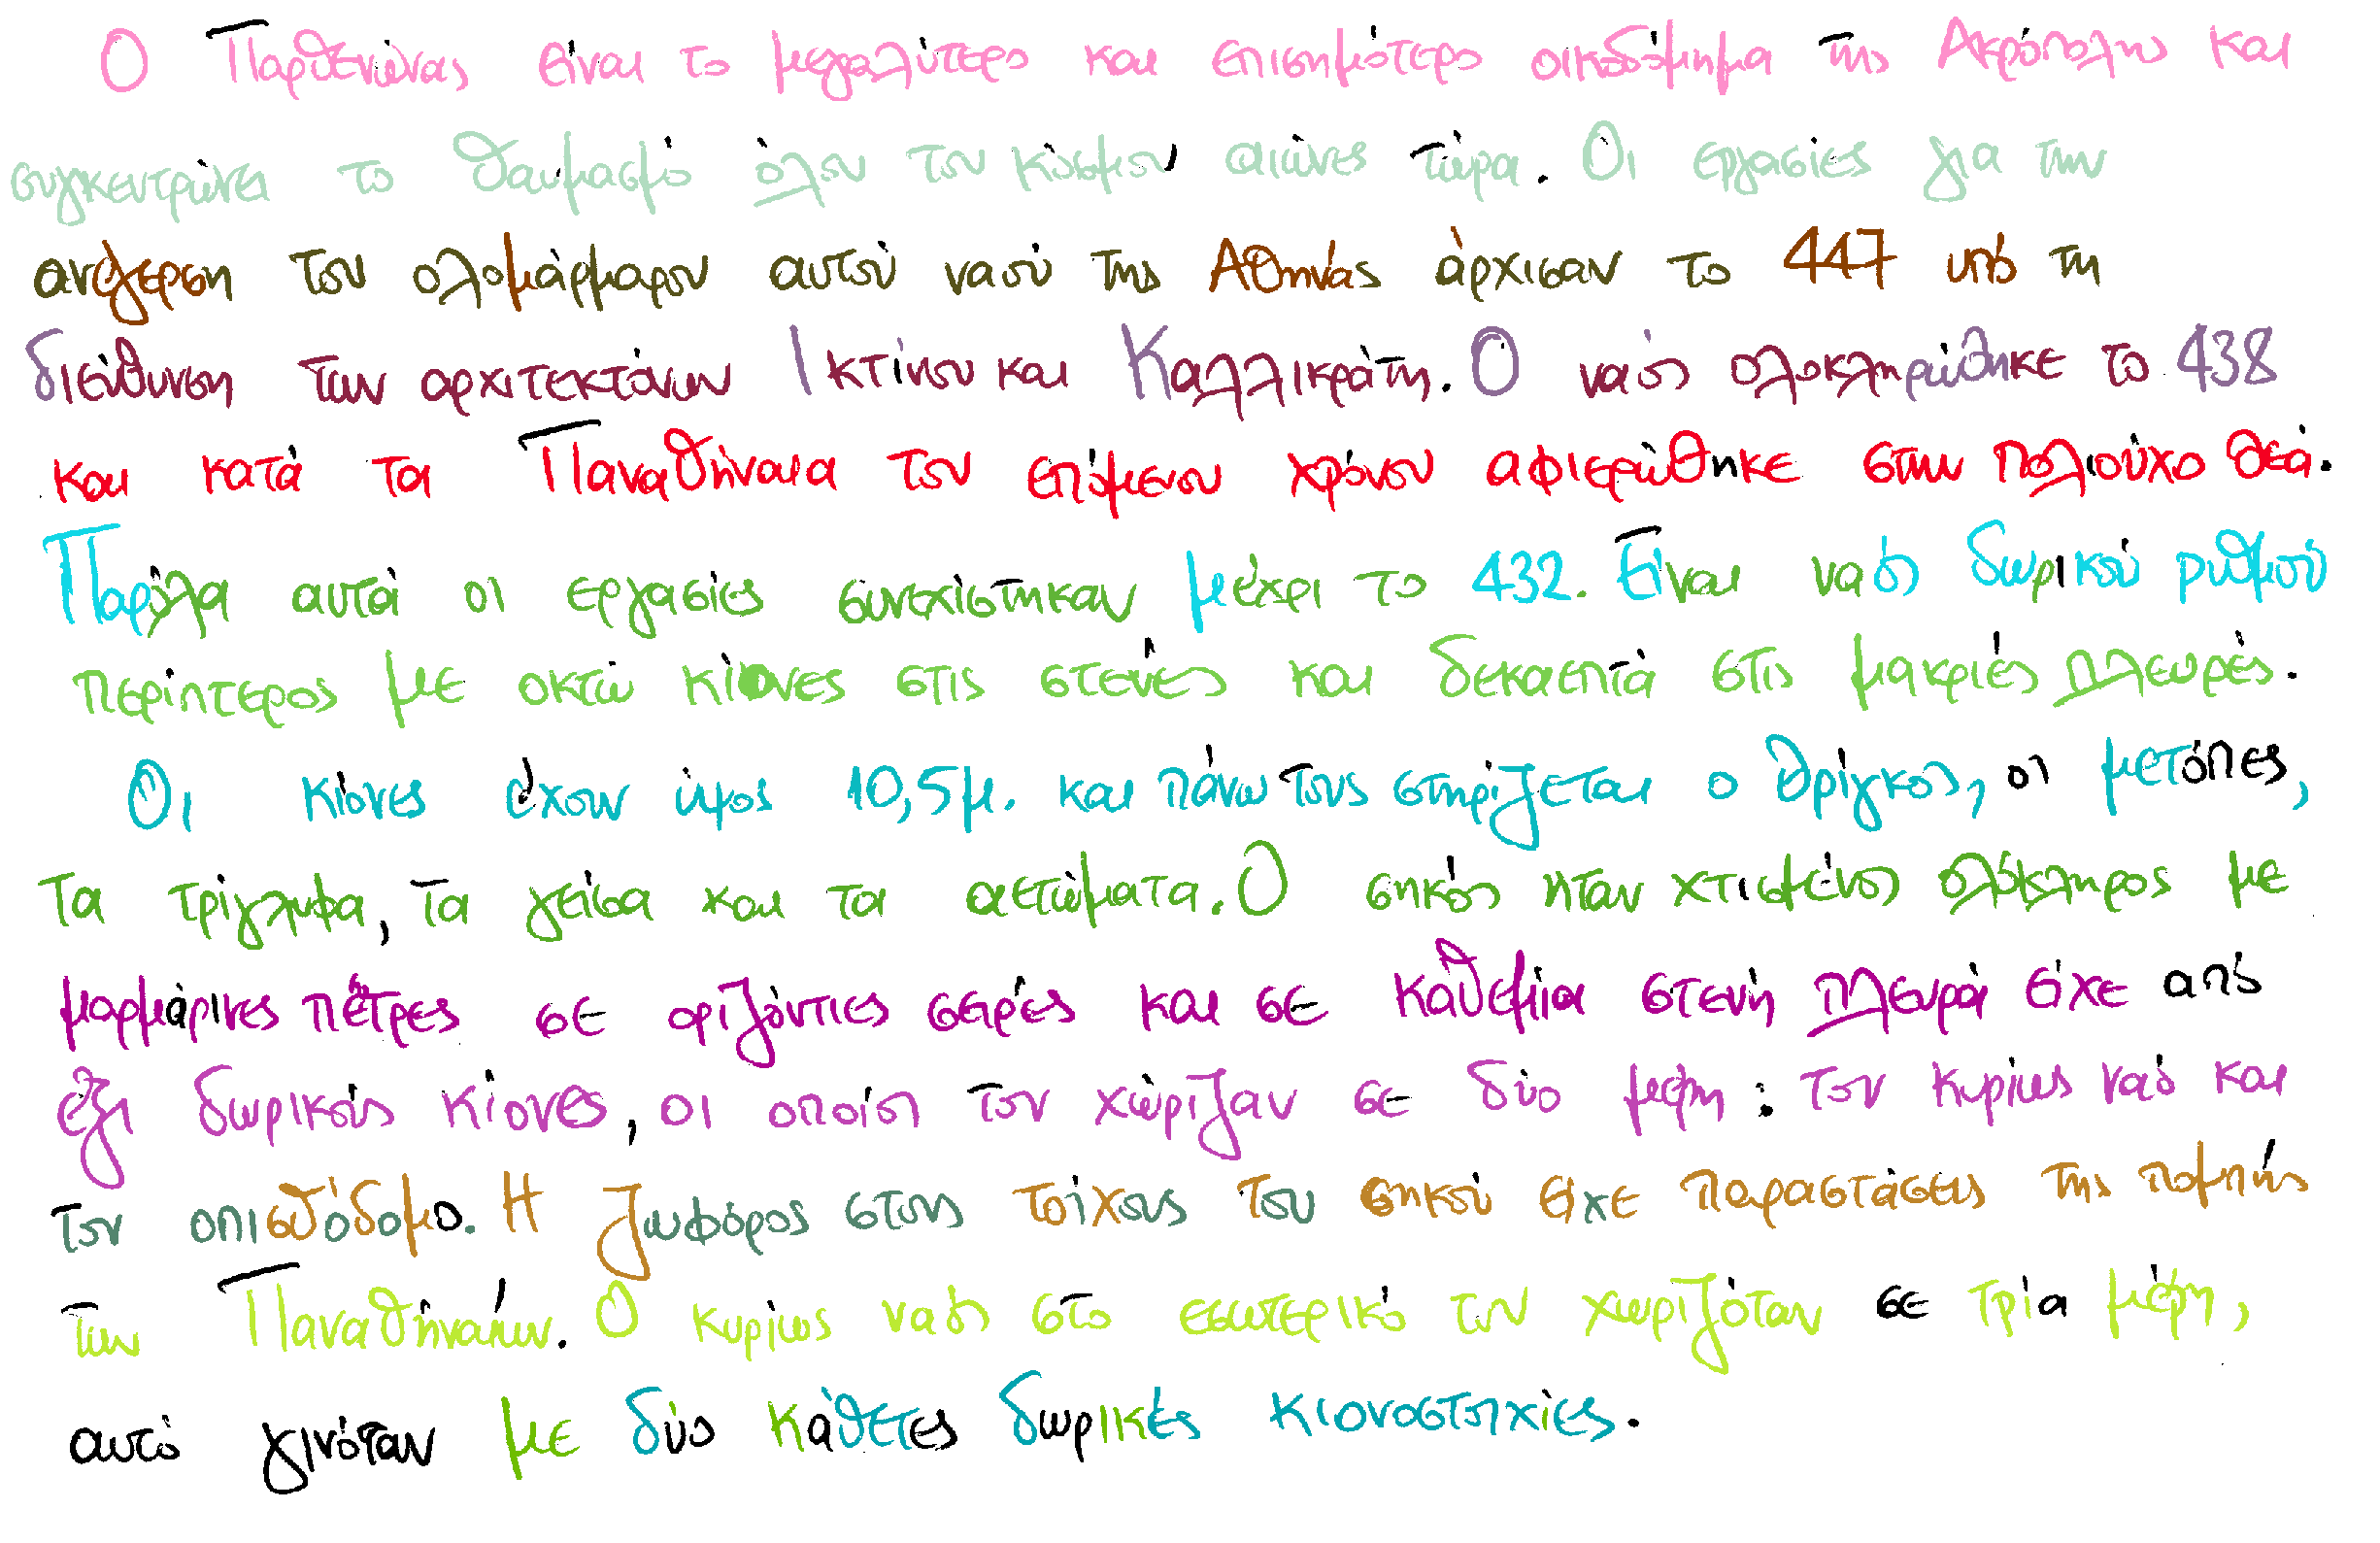 Ο Παρθενώνας είναι το μεγαλύτερο και επισημότερο οικοδόμημα της Ακρόπολης και
συγκεντρώνει το θαυμασμό όλου του κόσμου αιώνες τώρα. Οι εργασίες για την
ανέγερση του ολομάρμαρου αυτού ναού της Αθηνάς άρχισαν το 447 υπό τη
διεύθυνση των αρχιτεκτόνων Ικτίνου και Καλλικράτη. Ο ναός ολοκληρώθηκε το 438
και κατά τα Παναθήναια του επόμενου χρόνου αφιερώθηκε στην πολιούχο θεά.
Παρόλα αυτά οι εργασίες συνεχίστηκαν μέχρι το 432. Είναι ναός δωρικού ρυθμού
περίπτερος με οκτώ κίονες στις στενές και δεκαεπτά στις μακριές πλευρές.
Οι κίονες έχουν ύψος 10,5μ. και πάνω τους στηρίζεται ο θρίγκος, οι μετόπες,
τα τρίγλυφα, τα γείσα και τα αετώματα. Ο σηκός ήταν χτισμένος ολόκληρος με
μαρμάρινες πέτρες σε οριζόντιες σειρές και σε καθεμία στενή πλευρά είχε από
έξι δωρικούς κίονες, οι οποίοι τον χώριζαν σε δύο μέρη: τον κυρίως ναό και
τον οπισθόδομο. Η ζωφόρος στους τοίχους του σηκού είχε παραστάσεις της πομπής
των Παναθηναίων. Ο κυρίως ναός στο εσωτερικό του χωριζόταν σε τρία μέρη,
αυτό γινόταν με δύο κάθετες δωρικές κιονοστοιχίες.